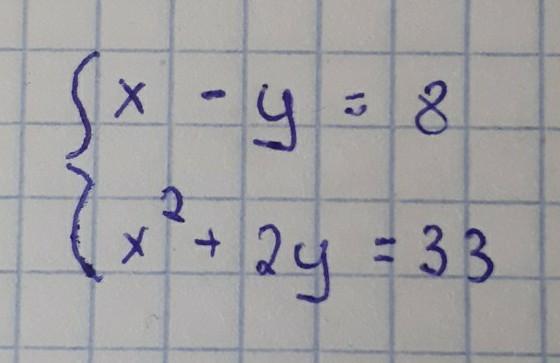 x - y = 8
x² + 2y = 33